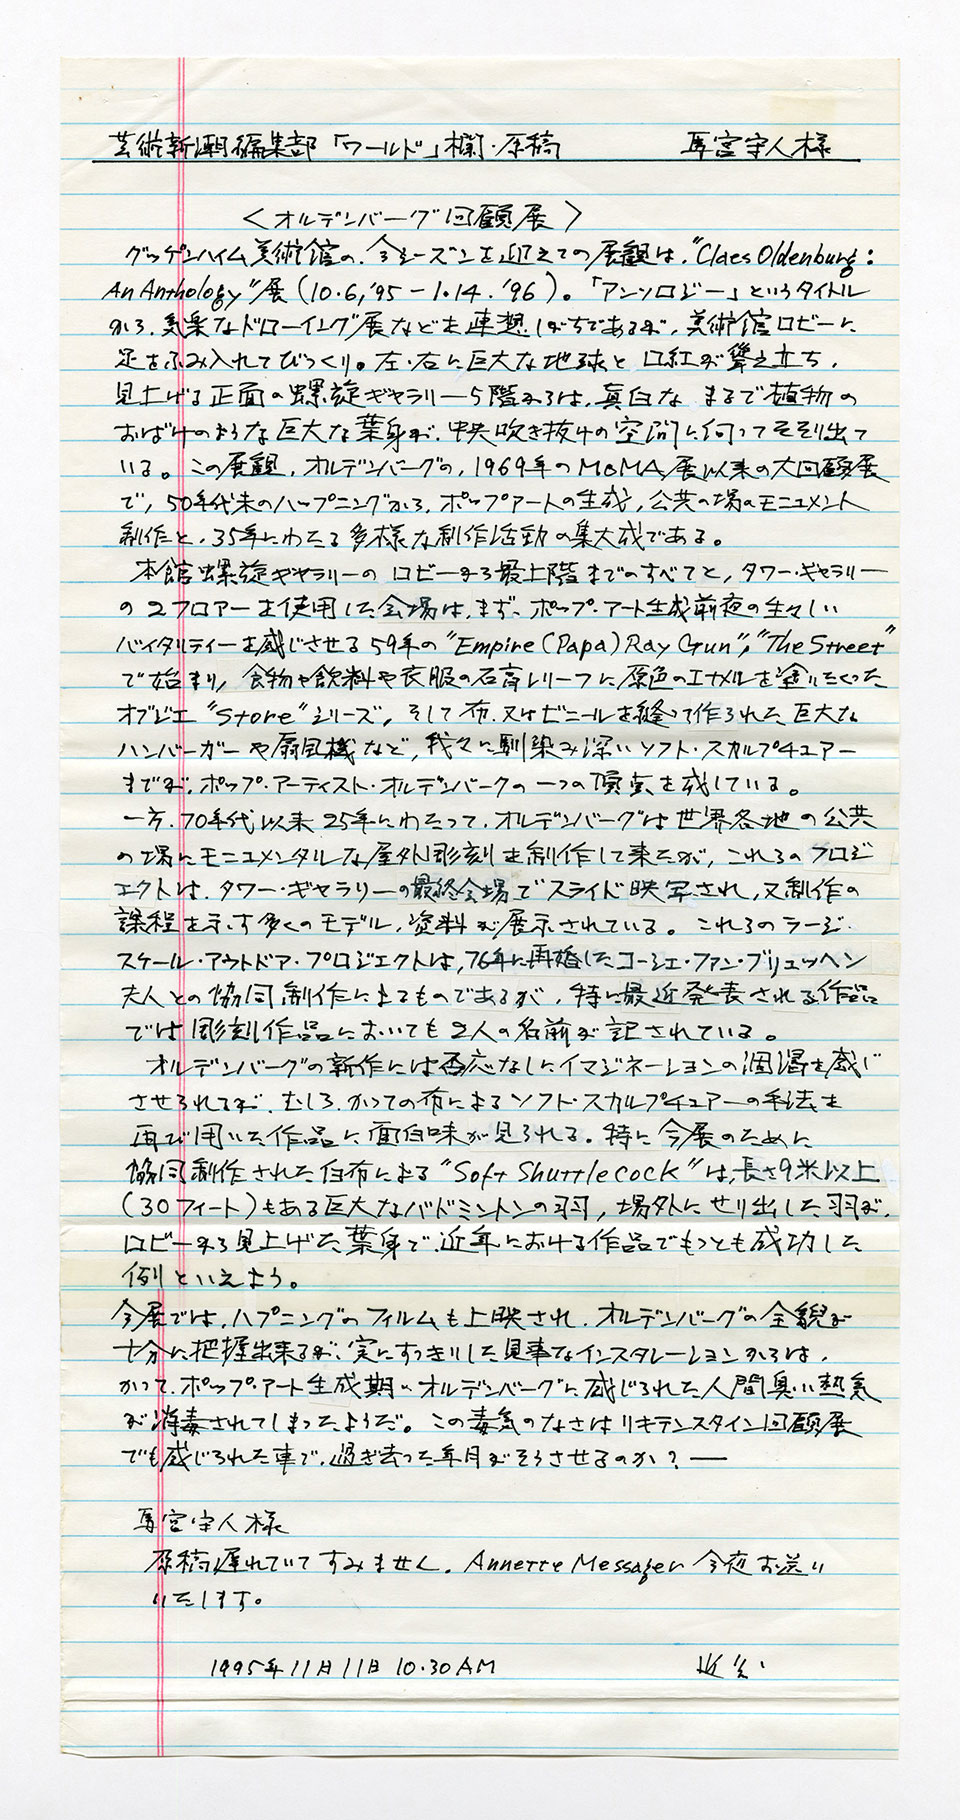 芸術新潮編集部「ワールド」欄・原稿　馬宮守人様
＜オルデンバーグ回顧展＞
グッゲンハイム美術館の、今シーズンを迎えての展観は、"Claes Oldenburg:
An Anthology"展（10.6,'95－1.14.'96）。「アンソロジー」というタイトル
から、気楽なドローイング展などを連想しがちであるが、美術館ロビーに
足をふみ入れてびっくり。左・右に巨大な地球と口紅が聳え立ち、
見上げる正面の螺旋ギャラリー5階からは、真白な まるで植物の
おばけのような巨大な葉身が、中央吹き抜けの空間に向ってそそり出て
いる。この展観、オルデンバーグの、1969年のMoMA展以来の大回顧展
で、50年代末のハップニングから、ポップアートの生成、公共の場のモニュメント
制作と、35年にわたる多様な制作活動の集大成である。
本館螺旋ギャラリーのロビーから最上階までのすべてと、タワー・ギャラリー
の2フロアーを使用した会場は、まず、ポップ・アート生成前夜の生々しい
バイタリティーを感じさせる59年の"Empire (Papa) Ray Gun", "The Street"
で始まり、食物や飲料や衣服の石膏レリーフに原色のエナメルを塗りたくった
オブジェ"Store"シリーズ、そして布、又はビニールを縫って作られた巨大な
ハンバーガーや扇風機など、我々に馴染み深いソフト・スカルプチュアー
までが、ポップ・アーティスト・オルデンバークの一つの頂点を成している。
一方、70年代以来25年にわたって、オルデンバーグは世界各地の公共
の場にモニュメンタルな屋外彫刻を制作して来たが、これらのプロジ
ェクトは、タワー・ギャラリーの最終会場でスライド映写され、又制作の
課程を示す多くのモデル、資料が展示されている。これらのラージ・
スケール・アウトドア・プロジェクトは、76年に再婚したコーシェ・ファン・ブリュッヘン
夫人との協同制作によるものであるが、特に最近発表される作品
では彫刻作品においても2人の名前が記されている。
オルデンバーグの新作には否応なしにイマジネーションの涸渇を感じ
させられるが、むしろ、かつての布によるソフト・スカルプチュアーの手法を
再び用いた作品に面白味が見られる。特に今展のために
協同制作された白布による"Soft Shuttlecock"は、長さ9米以上
（30フィート）もある巨大なバドミントンの羽、場外にせり出した羽が、
ロビーから見上げた葉身で、近年における作品でもっとも成功した
例といえよう。
今展では、ハプニングのフィルムも上映され、オルデンバーグの全貌が
十分に把握出来るが、実にすっきりした見事なインスタレーションからは、
かつて、ポップ・アート生成期にオルデンバーグに感じられた人間臭い熱気
が消毒されてしまったようだ。この毒気のなさはリキテンスタイン回顧展
でも感じられた事で、過ぎ去った年月がそうさせるのか？――
馬宮守人様
原稿遅れていてすみません。Annette Messager 今夜お送り
いたします。
1995年11月11日 10.30AM